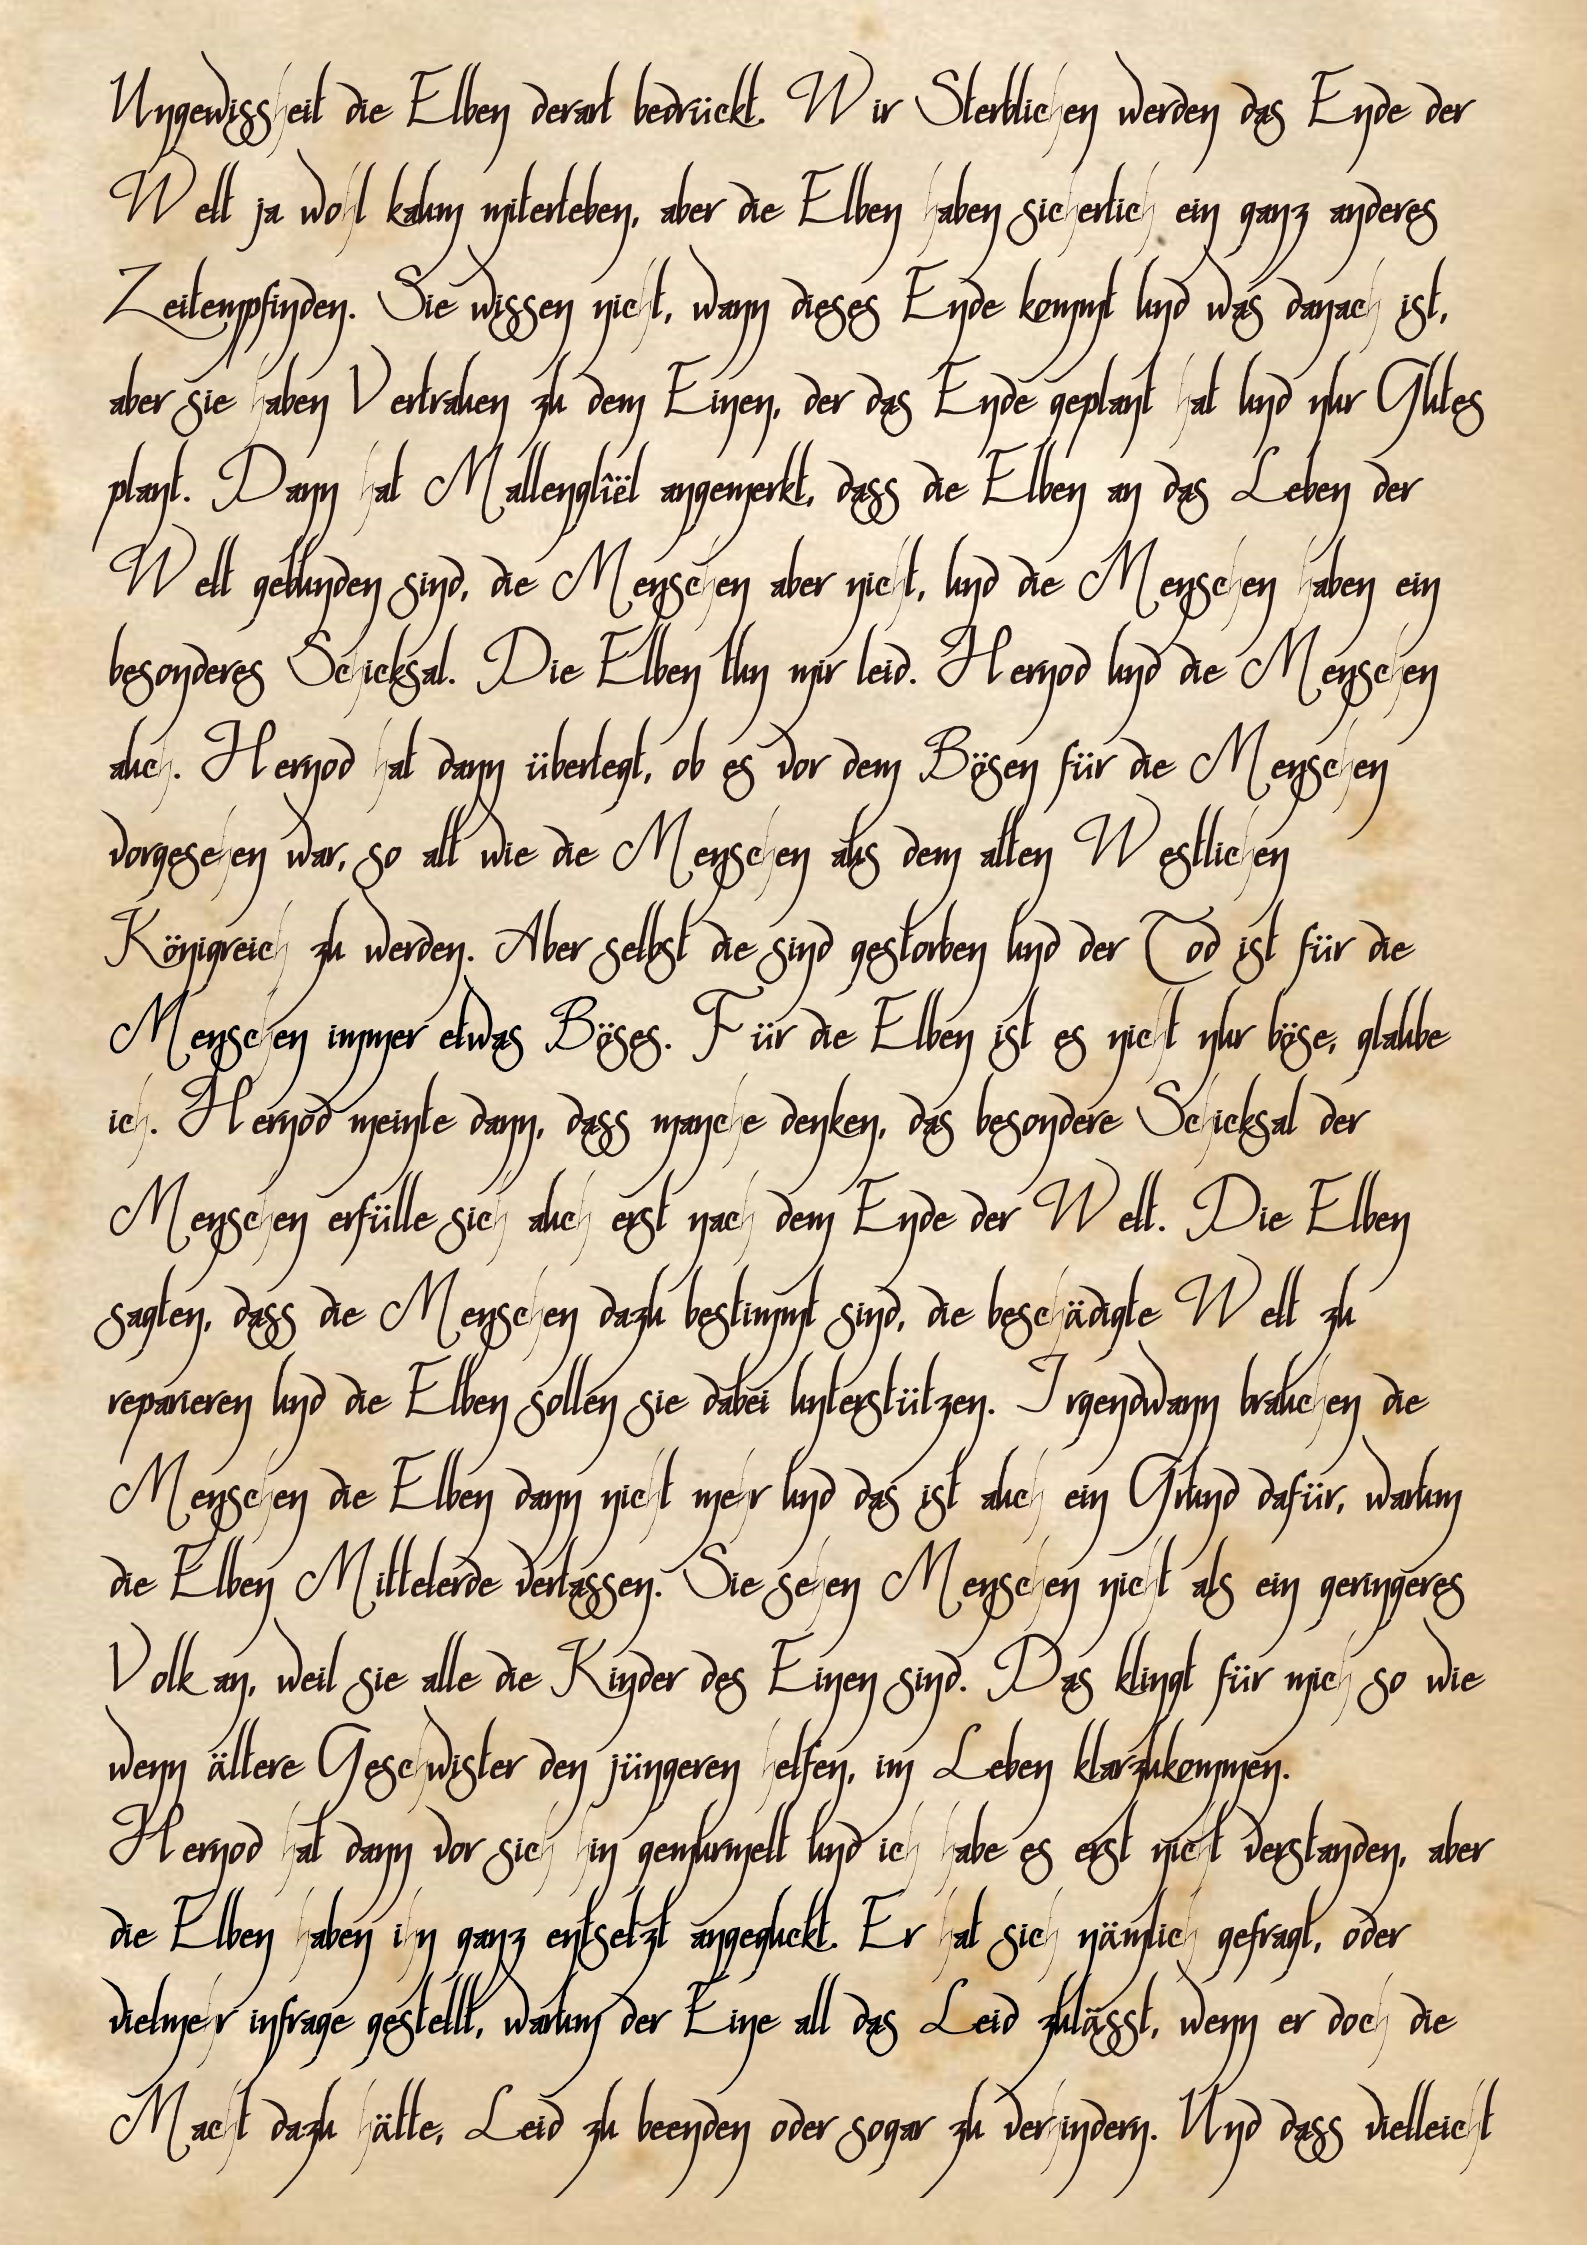 Ungewissheit die Elben derart bedrückt. Wir Sterblichen werden das Ende der
Welt ja wohl kaum miterleben, aber die Elben haben sicherlich ein ganz anderes
Zeitempfinden. Sie wissen nicht, wann dieses Ende kommt und was danach ist,
aber sie haben Vertrauen zu dem Einen, der das Ende geplant hat und nur Gutes
plant. Dann hat Mallenglîël angemerkt, dass die Elben an das Leben der
Welt gebunden sind, die Menschen aber nicht, und die Menschen haben ein
besonderes Schicksal. Die Elben tun mir leid. Hernod und die Menschen
auch. Hernod hat dann überlegt, ob es vor dem Bösen für die Menschen
vorgesehen war, so alt wie die Menschen aus dem alten Westlichen
Königreich zu werden. Aber selbst die sind gestorben und der Tod ist für die
Menschen immer etwas Böses. Für die Elben ist es nicht nur böse, glaube
ich. Hernod meinte dann, dass manche denken, das besondere Schicksal der
Menschen erfülle sich auch erst nach dem Ende der Welt. Die Elben
sagten, dass die Menschen dazu bestimmt sind, die beschädigte Welt zu
reparieren und die Elben sollen sie dabei unterstützen. Irgendwann brauchen die
Menschen die Elben dann nicht mehr und das ist auch ein Grund dafür, warum
die Elben Mittelerde verlassen. Sie sehen Menschen nicht als ein geringeres
Volk an, weil sie alle die Kinder des Einen sind. Das klingt für mich so wie
wenn ältere Geschwister den jüngeren helfen, im Leben klarzukommen.
Hernod hat dann vor sich hin gemurmelt und ich habe es erst nicht verstanden, aber
die Elben haben ihn ganz entsetzt angeguckt. Er hat sich nämlich gefragt, oder
vielmehr infrage gestellt, warum der Eine all das Leid zulässt, wenn er doch die
Macht dazu hätte, Leid zu beenden oder sogar zu verhindern. Und dass vielleicht